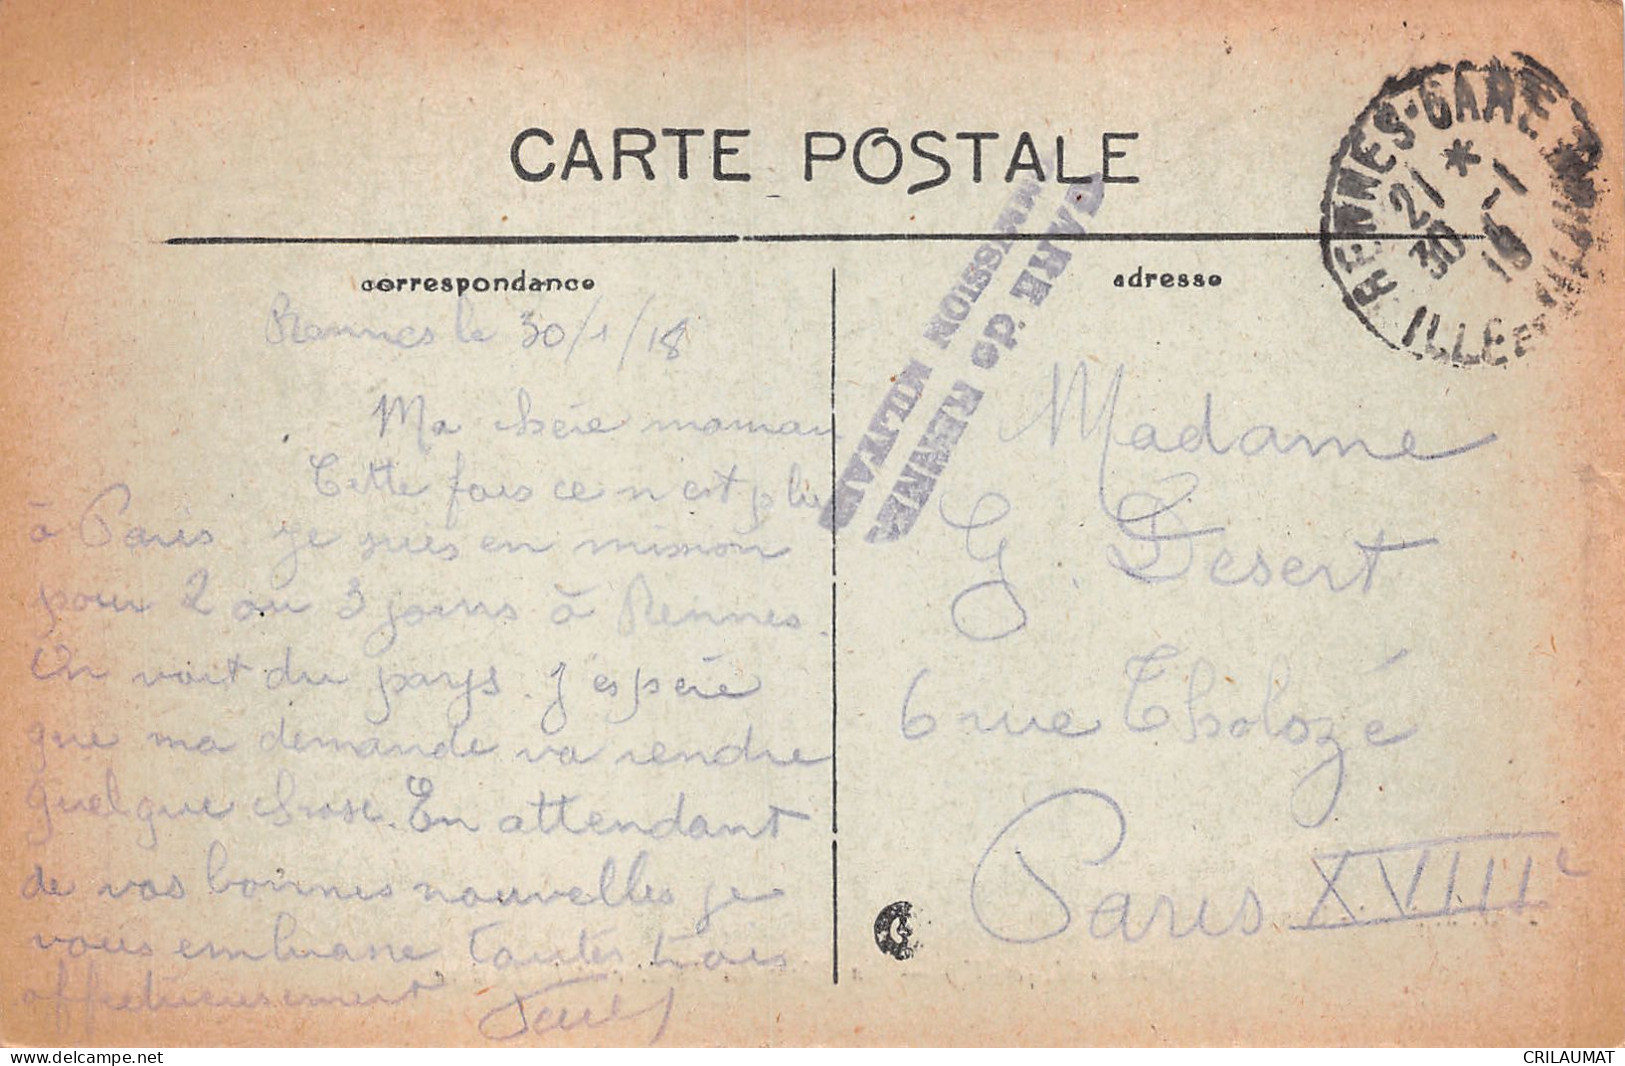 CARTE POSTALE
correspondance
adresse
RENNES-GARE
21 *
30 -1
18
ILLE-ET-VILAINE
GARE de RENNES
COMMISSION MILITAIRE
Rennes le 30/1/18
Ma chère maman
Cette fois ce n est plus
à Paris je suis en mission
pour 2 ou 3 jours à Rennes.
On voit du pays. J'espère
que ma demande va rendre
quelque chose. En attendant
de vos bonnes nouvelles je
vous embrasse toutes trois
affectueusement Paul
Madame
G. Desert
6 rue Tholozé
Paris XVIIIe
delcampe.net
CRILAUMAT